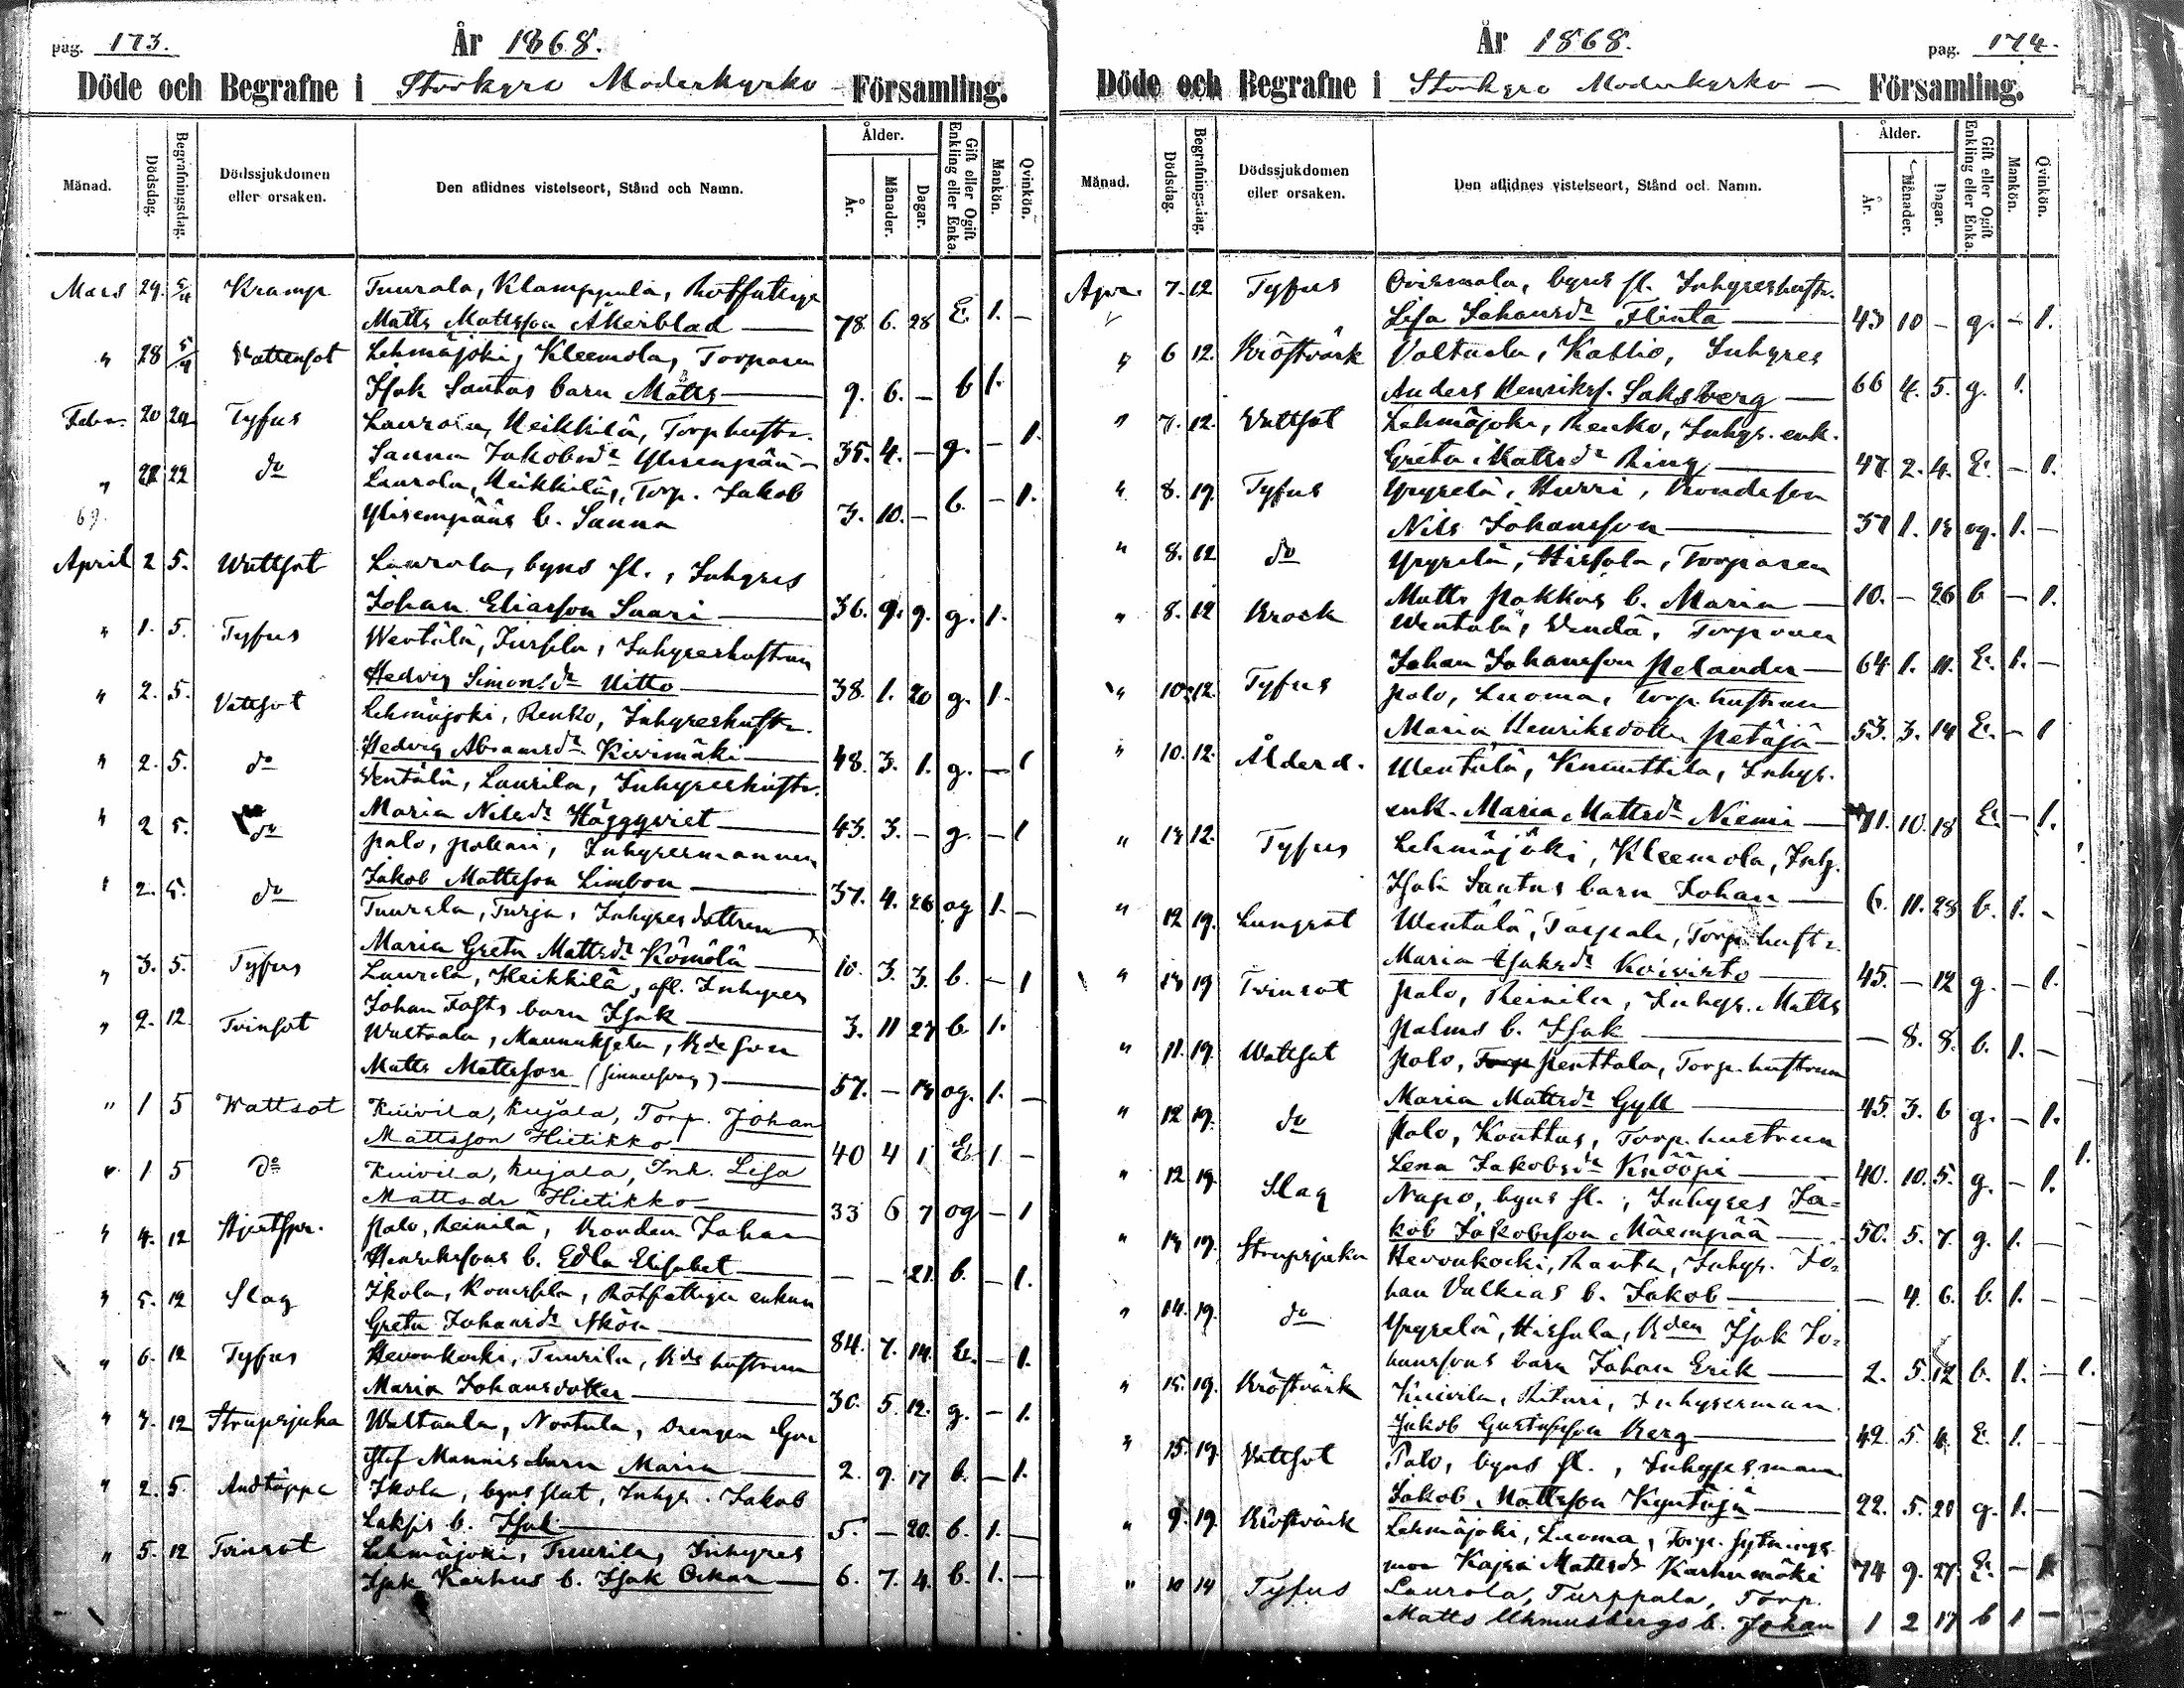 pag. 173.
År 1868.
Döde och Begrafne i Storkyro Moderkyrko Församling.
Månad.
Dödsdag.
Begrafningsdag.
Dödssjukdomen eller orsaken.
Den aflidnes vistelseort, Stånd och Namn.
Ålder.
År.
Månader.
Dagar.
Gift eller Ogift Enkling eller Enka.
Mankön.
Qvinkön.
Mars 29. 5/4 Kramp Tuurala, Klamppula, Rotfattige
Matts Mattsson Åkerblad — 78. 6. 28 E. 1. —
" 28 5/4 Vattensot Lehmäjoki, Kleemola, Torparen
Isak Santas barn Matts — 9. 6. — b 1.
Febr. 20 22 Tyfus Laurola, Heikkilä, Torphustr.
Sanna Jakobsdr Ylisenpää — 35. 4. — g. — 1.
" 22 do Laurola, Heikkilä, Torp. Jakob
69. Ylisempääs b. Sanna 3. 10. — b. — 1.
April 2 5. Wattsot Laurola, byns fl., Inhyses
Johan Eliasson Saari — 36. 9. 9. g. 1.
" 1. 5. Tyfus Wentälä, Inhyseshustrun
Hedvig Simonsdr Uitto — 38. 1. 20 g. 1.
" 2. 5. Vattsot Lehmäjoki, Renko, Inhyseshustr.
Hedvig Abramsdr Kivimäki — 48. 3. 1. g. — 1
" 2. 5. do Wentälä, Laurila, Inhyseshustr.
Maria Nilsdr Häggqvist — 43. 3. — g. — 1
" 2 5. do Palo, Pollari, Inhysesmannen
Jakob Mattsson Limbon — 37. 4. 26 og 1. —
" 2. 5. do Tuurala, Turja, Inhyses dottren
Maria Greta Mattsdr Kömölä — 10. 3. 3. b. — 1
" 3. 5. Tyfus Laurola, Heikkilä, afl. Inhyses
Johan Fasts barn Isak — 3. 11 27 b. 1.
" 2. 12 Tvinsot Waltaala, Mannuksela, Bde son
Matts Mattsson (sinnessvag) — 57. — 13 og. 1. —
" 1 5 Wattsot Kuivila, Kujala, Torp. Johan
Mattsson Hietikko 40 4 1 E 1 —
" 1 5 do Kuivila, Kujala, Inh. Lisa
Mattsdr Hietikko — 33 6 7 og — 1
" 4. 12 Palo, Reinilä, Bonden Johan
Henrikssons b. Edla Elisabet — — — 21. b. — 1.
" 5. 12 Slag Ikola, Rotfattiga enkan
Greta Johansdr — 84. 7. 14. E. — 1.
" 6. 12 Tyfus Hevonkoski, Tuurila, Bds hustrun
Maria Johansdotter — 30. 5. 12. g. — 1.
" 7. 12 Strupsjuka Waltaala, Nortula, Drengen Gu
staf Mannis barn Maria — 2. 9. 17 b. — 1.
" 2. 5. Andtäppa Ikola, byns flat, Inhys. Jakob
b. Isak — 5. — 20. b. 1. —
" 5. 12 Tvinsot Lehmäjoki, Tuurila, Inhyses
Isak Karhus b. Isak Oskar — 6. 7. 4. b. 1. —
År 1868.
pag. 174.
Döde och Begrafne i Storkyro Moderkyrko — Församling.
Månad.
Dödsdag.
Begrafningsdag.
Dödssjukdomen eller orsaken.
Den aflidnes vistelseort, Stånd och Namn.
Ålder.
År.
Månader.
Dagar.
Gift eller Ogift Enkling eller Enka.
Mankön.
Qvinkön.
Apr. 7. 12 Tyfus Orismala, byns fl. Inhyseshustr.
Lisa Johansdr Flinta — 43 10 — g. — 1.
" 6 12. Bröstvärk Valtaala, Kallio, Inhyses
Anders Henrikss. Saksberg — 66 4. 5. g. 1.
" 7. 12. Vattsot Lehmäjoki, Renko, Inhys. enk.
Greta Mattsdr Ring — 47 2. 4. E. — 1.
" 8. 19. Tyfus Yryselä, Hurri, Bondeson
Nils Johansson — 31 1. 13 og. 1. —
" 8. 12 do Yryselä, Hissala, Torparen
Matts Pakkas b. Maria — 10. — 26 b — 1.
" 8. 12 Brock Wentälä, Torparen
Johan Johansson Pelander — 64. 1. 11. E. 1. —
" 10. 12. Tyfus Palo, Luoma, Torp. hustrun
Maria Henriksdotter Petäjä — 53. 3. 14 E. — 1
" 10. 12. Ålderd. Wentälä, Knuuttila, Inhys.
enk. Maria Mattsdr Niemi — 71. 10. 18 E. — 1.
" 13 12. Tyfus Lehmäjoki, Kleemola, Inhy.
Isak Santas barn Johan — 6. 11. 23 b. 1. —
" 12 19. Lungsot Wentälä, Torp. hustr.
Maria Isaksdr Koivisto — 45. — 12 g. — 1.
" 13 19 Tvinsot Palo, Reinilä, Inhys. Matts
Palms b. Isak — — 8. 8. b. 1. —
" 11. 19. Wattsot Palo, Penttala, Torp. hustrun
Maria Mattsdr Gyll — 45. 3. 6 g. — 1.
" 12 19. do Palo, Konttas, Torp. hustrun
Lena Jakobsdr Knööpi — 40. 10. 5. g. — 1.
" 12 19. Slag Napo, byns fl., Inhyses Ja-
kob Jakobsson Mäempää — 50. 5. 7. g. 1. —
" 13 19. Strupsjuka Hevonkoski, Ranta, Inhys. Jo-
han Valkias b. Jakob — — 4. 6. b. 1. —
" 14. 19. do Yryselä, Hissala, Bden Isak Jo-
hanssons barn Johan Erik — 2. 5. 12 b. 1. — 1.
" 15. 19. Bröstvärk Kuivila, Ritari, Inhysesman
Jakob Gustafsson Berg — 42. 5. 4. E. 1. —
" 15. 19. Vattsot Palo, byns fl., Inhysesman
Jakob Mattsson Kyntäjä — 22. 5. 21 g. 1. —
" 9. 19. Bröstvärk Lehmäjoki, Luoma, Torp. sytnings
mor Kajsa Mattsdr Karhumäki 74 9. 27 E. — 1
" 10 14 Tyfus Laurola, Turppala, Torp.
Matts Uhmusbergs b. Johan 1 2 17 b 1 —